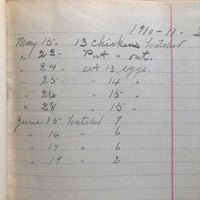 1910-11.
May 15- 13 Chickens hatched
" 22- Put " out.
" 24- set 13 eggs.
" 25- " 14 "
" 26 " 15 "
" 28 " 15 "
June 15 hatched 9
" 16 " 6
" 17 " 6
" 19 " 2